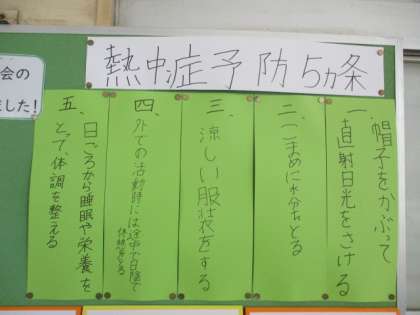 会の
ました!
熱中症予防5ヵ条
一、帽子をかぶって
直射日光をさける
二、こまめに水分をとる
三、涼しい服装をする
四、外での活動時には途中で日陰で
休憩等とる
五、日ごろから睡眠や栄養を
とって、体調を整える